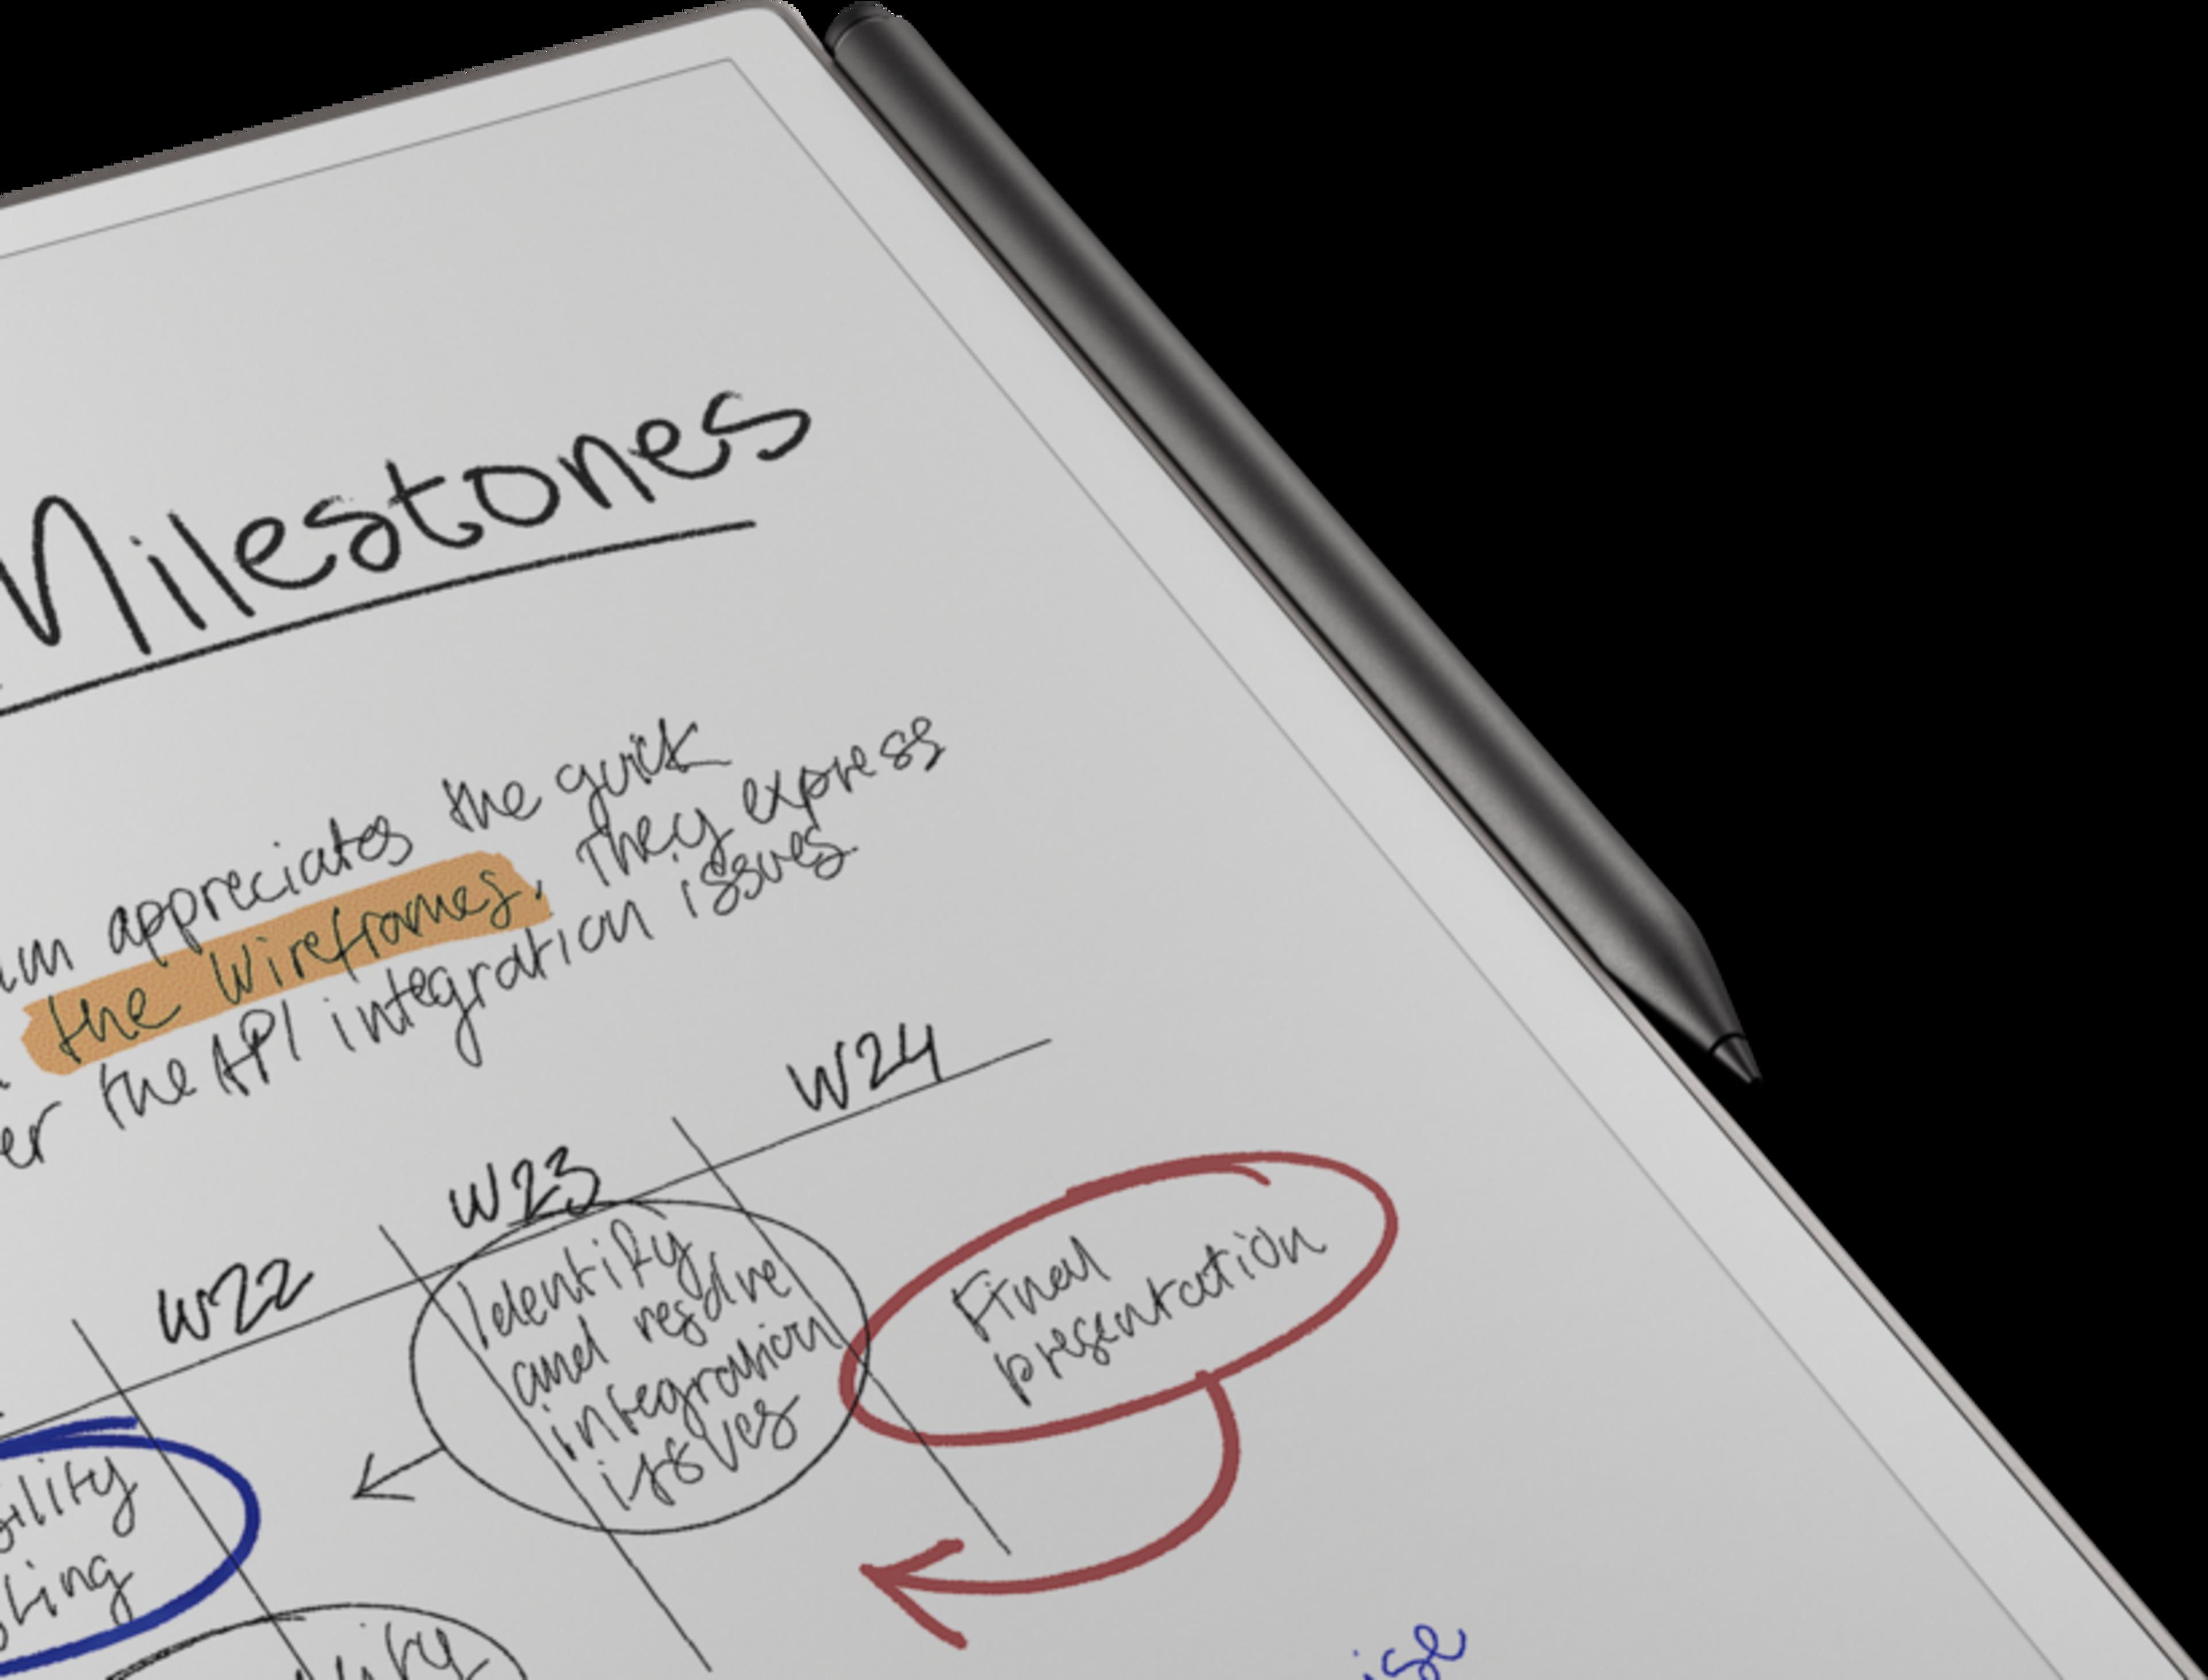 Milestones
appreciates the quick
the wireframes. They express
the API integration issues
W24
W23
W22
Identify
and resolve
integration
issues
Final
presentation